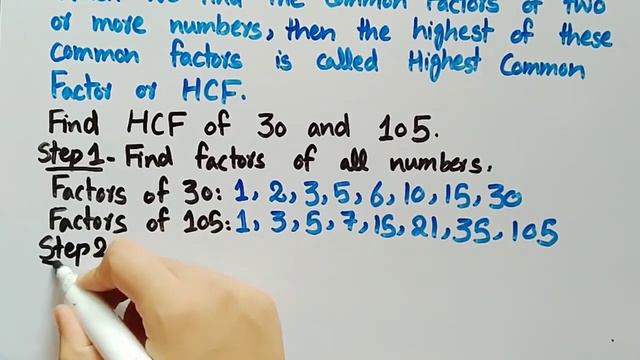 when we find the common factors of two
or more numbers, then the highest of these
common factors is called Highest Common
Factor or HCF.
Find HCF of 30 and 105.
Step 1 - Find factors of all numbers.
Factors of 30: 1, 2, 3, 5, 6, 10, 15, 30
Factors of 105: 1, 3, 5, 7, 15, 21, 35, 105
Step 2